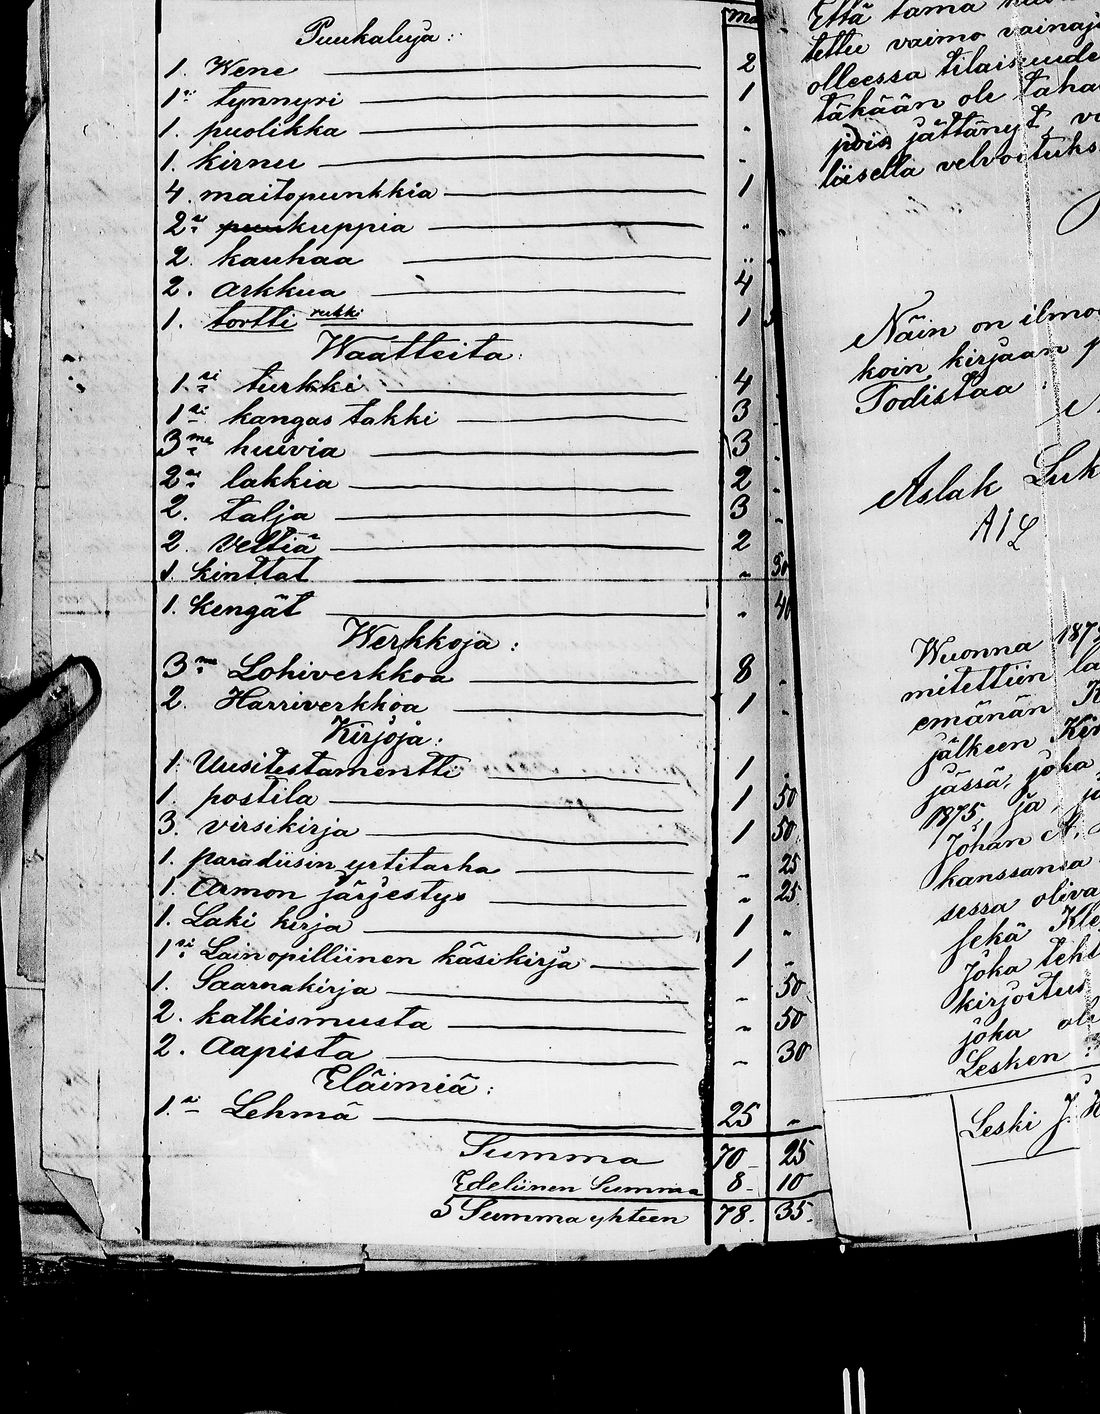 Puukaluja: mk
1. Wene 2
1si tynnyri 1
1. puolikka "
1. kirnu "
4. maitopunkkia 1
2si puukuppia "
2. kauhaa "
2. Arkkua 4
1. tortti rukki 1
Waatteita:
1si turkki 4 "
1si kangas takki 3 "
3me huivia 3 "
2si lakkia 2 "
2. talja 3 "
2. veltiä 2
1. kinttat " 50
1. kengät " 40
Werkkoja:
3me Lohiverkkoa 8 "
2. Harriverkkoa 1 "
Kirjoja:
1. Uusitestamentti 1 "
1. postila 1 50
3. virsikirja 1 50
1. paradiisin yrtitarha " 25
1. Armon järjestys " 25
1. Laki kirja 1 "
1si Lainopilliinen käsikirja 1 "
1. Saarnakirja " 50
2. katkismusta " 50
2. Aapista " 30
Eläimiä:
1si Lehmä 25 "
Summa 70 25
Edeliinen Summa 8 10
Summa yhteen 78. 35.
Että tämä
tettu vaimo vainaj
olleessa tilaisuude
täkään ole taha
pois jättänyt, va
läisellä velvoituks
Näin on ilmo
koin kirjaan p
Todistaa:
Aslak Luk
A I L
Wuonna 1875
mitettiin la
emänän K
jälkeen
jässä, joka
1875, ja, jo
Johan A.
kanssansa
sessa oliva
sekä Kle
Joka teht
kirjoitus
joka ole
Lesken:
Leski J. K